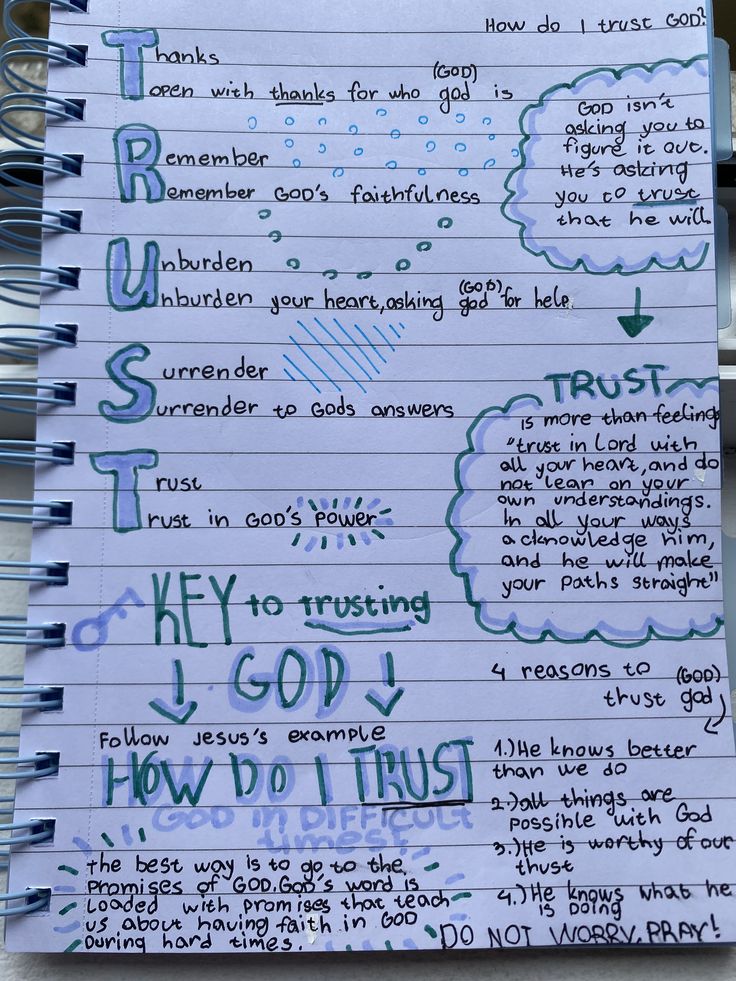 How do I trust GOD?
Thanks
open with thanks for who god is
(GOD)
Remember
Remember GOD's faithfulness
Unburden
Unburden your heart, asking god for help.
(GOD)
Surrender
Surrender to Gods answers
Trust
Trust in GOD's power
GOD isn't
asking you to
figure it out.
He's asking
you to trust
that he will.
TRUST
is more than feeling
"trust in Lord with
all your heart, and do
not lear on your
own understandings.
In all your ways
acknowledge him,
and he will make
your paths straight"
KEY to trusting
GOD
Follow Jesus's example
HOW DO I TRUST
GOD in DIFFICULT
times?
the best way is to go to the
promises of GOD. God's word is
Loaded with promises that teach
us about having faith in GOD
During hard times.
4 reasons to
trust god
(GOD)
1.) He knows better
than we do
2.) all things are
possible with God
3.) He is worthy of our
thust
4.) He knows what he
is Doing
DO NOT WORRY, PRAY!